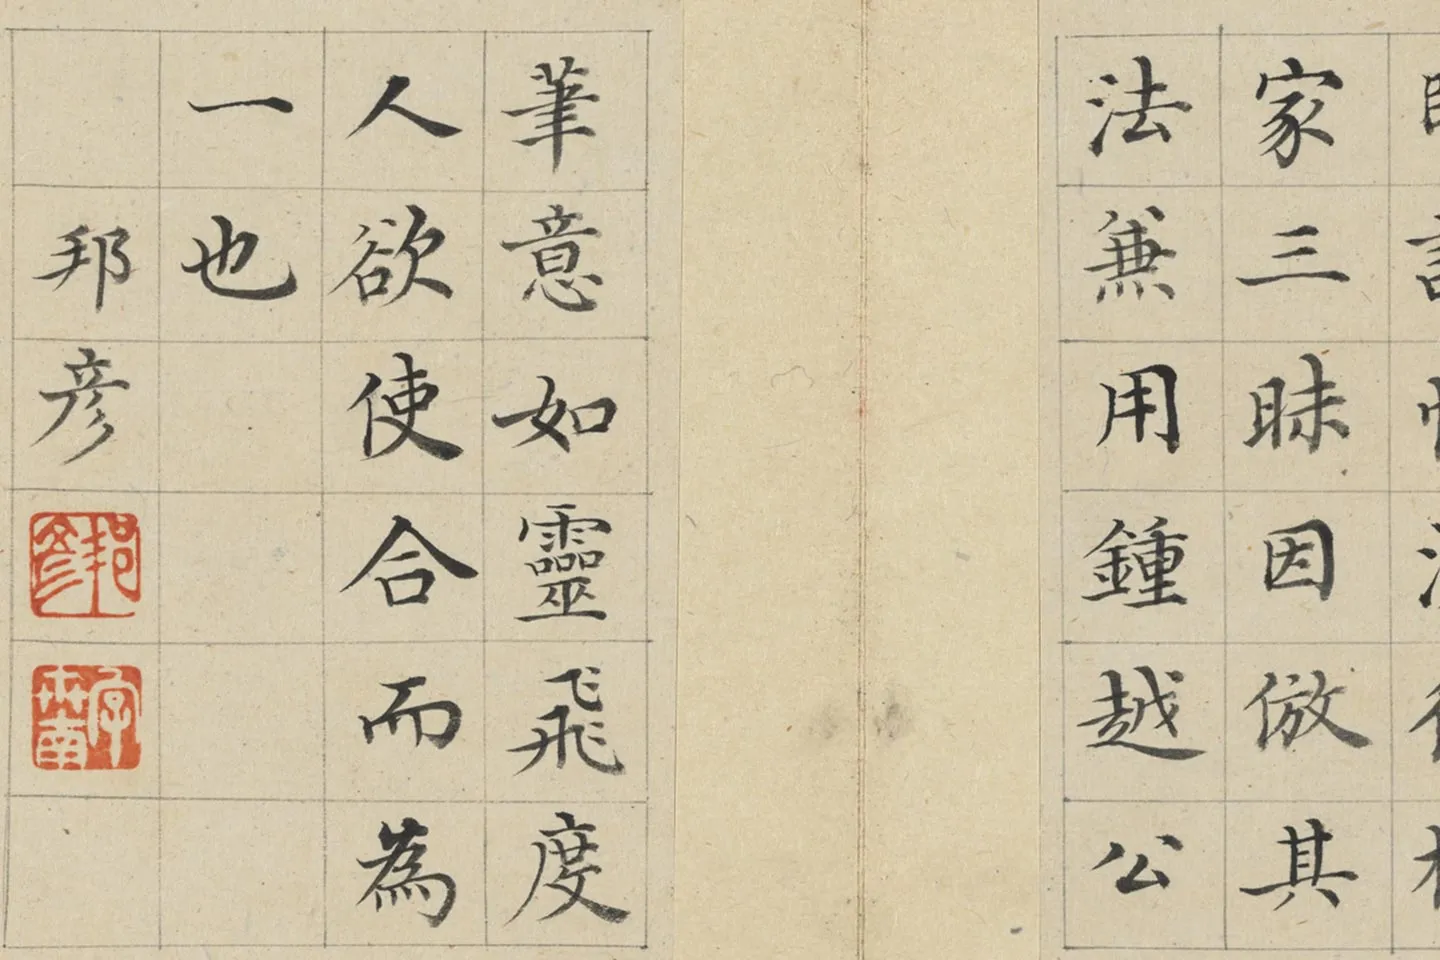 家三昧因倣其
法兼用鍾越公
筆意如靈飛度
人欲使合而為
一也
邦彥
邦彥
字世南